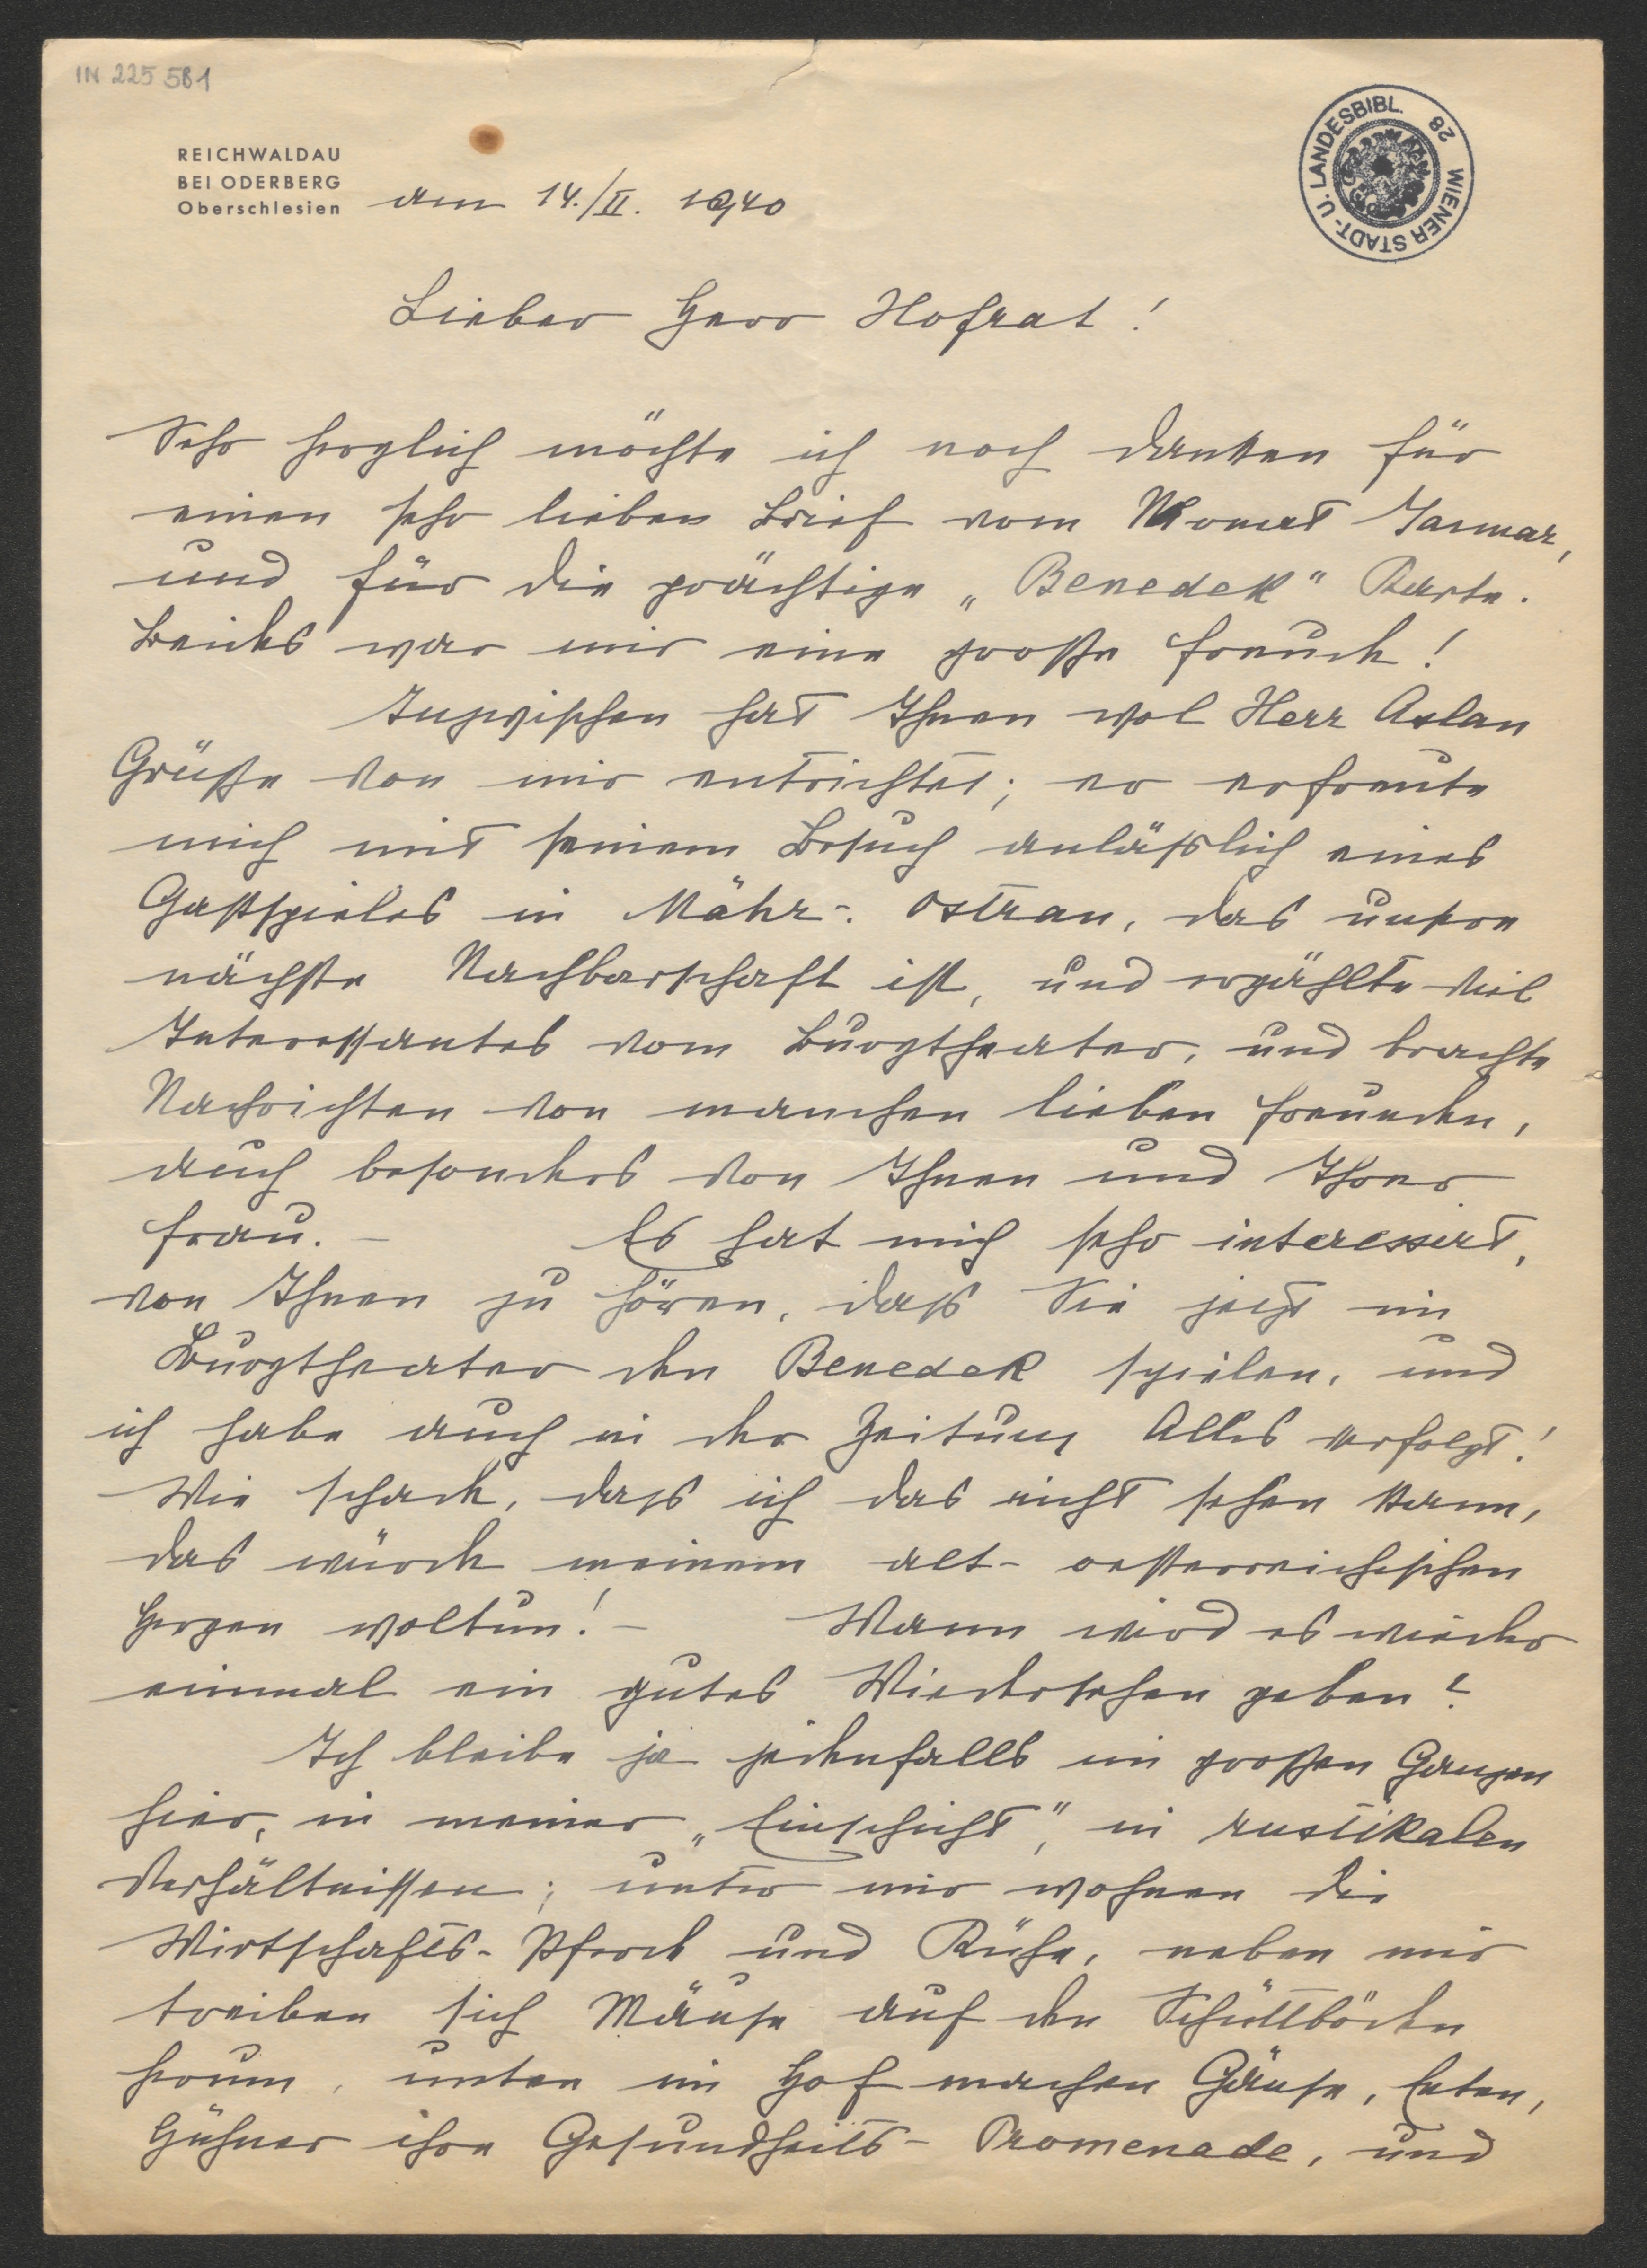 IN 225 581
WIENER STADT- U. LANDESBIBL. 28
REICHWALDAU
BEI ODERBERG
Oberschlesien
am 14./II. 1940
Lieber Herr Hofrat!
Sehr herzlich möchte ich noch danken für
einen sehr lieben Brief vom Monat Januar,
und für die prächtige „Benedek" Karte.
Beides war mir eine große Freude!
Inzwischen hat Ihnen wol Herr Aslan
Grüße von mir entrichtet; er erfreute
mich mit seinem Besuch anläßlich eines
Gastspieles in Mähr-. Ostrau, das unsre
nächste Nachbarschaft ist, und erzählte viel
Interessantes vom Burgtheater, und brachte
Nachrichten von manchen lieben Freunden,
auch besonders von Ihnen und Ihrer
Frau. – Es hat mich sehr interessirt,
von Ihnen zu hören, dass Sie jetzt im
Burgtheater den Benedek spielen, und
ich habe auch in der Zeitung Alles verfolgt!
Wie schade, dass ich das nicht sehen kann,
das würde meinem alt-oesterreichischen
Herzen woltun! – Wann wird es wieder
einmal ein gutes Wiedersehen geben?
Ich bleibe ja jedenfalls im großen Ganzen
hier, in meiner „Einschicht", in rustikalen
Verhältnissen; unter mir wohnen die
Wirtschafts-Pferde und Kühe, neben mir
treiben sich Mäuse auf den Schüttböden
herum, unten im Hof machen Gänse, Enten,
Hühner ihre Gesundheits-Promenade, und